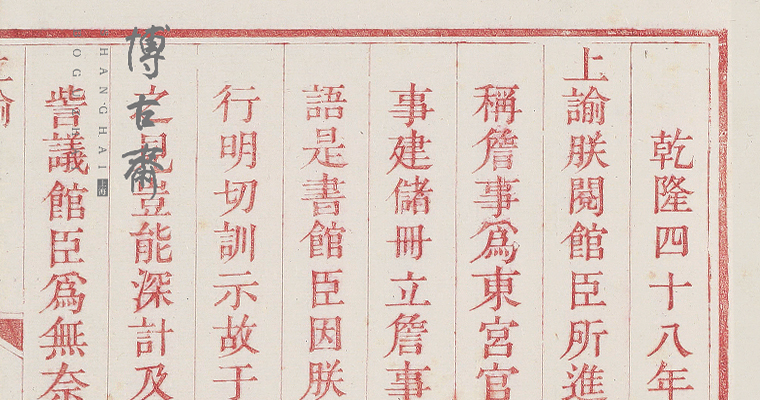 乾隆四十八年
上諭朕閱館臣所進
稱詹事爲東宮官
事建儲冊立詹事
語是書館臣因朕
行明切訓示故于
之見豈能深計及
訾議館臣爲無奈
博古齋
SHANGHAI